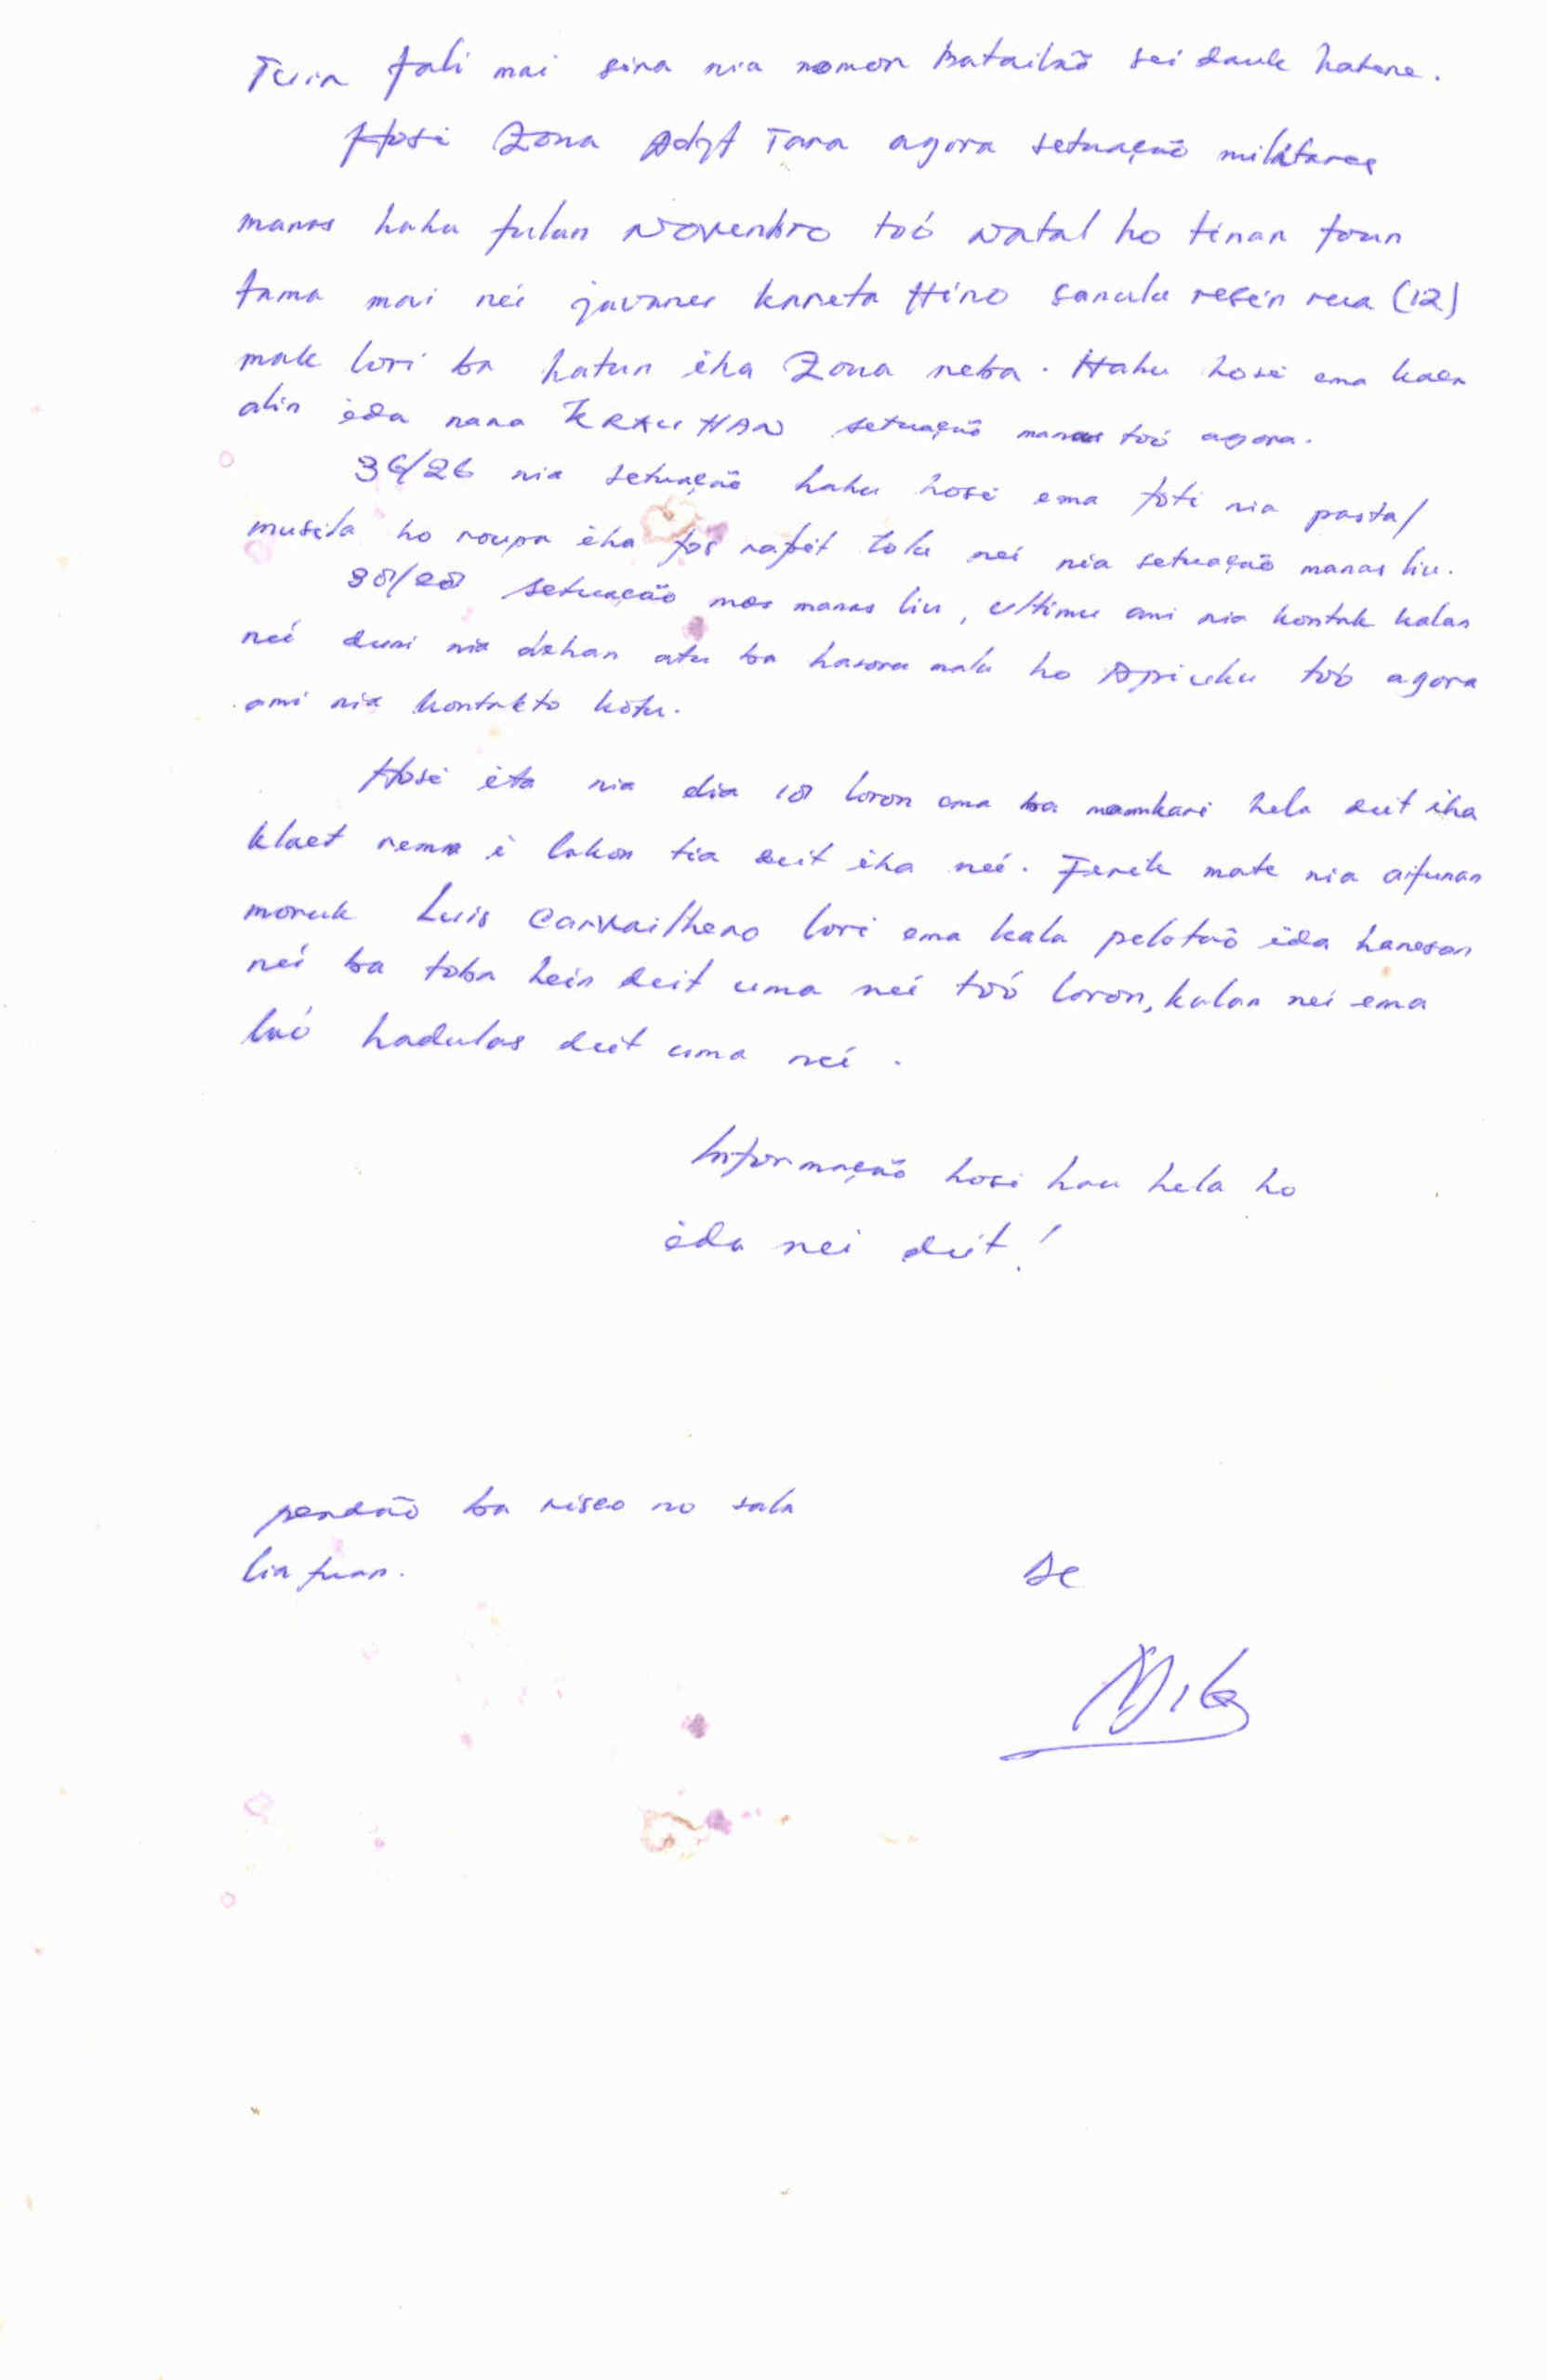 Tuir fali mai sira nia nomor batailaõ sei dauk hatene.
Hosi Zona Adjt Tara agora setuaçaõ militares
manas hahu fulan Novembro too Natal ho tinan foun
tama mai nei javanes kareta Hino sanulu resin rua (12)
mak lori ba hatun iha Zona neba. Hahu hosi ema kaer
alin ida nara KRAUHAN setuaçaõ manas too agora.
36/26 nia setuaçaõ hahu hosi ema foti nia pasta/
musila ho roupa iha tos rabat tolu nei nia setuaçaõ manas liu.
38/28 setuaçaõ mos manas liu, ultimu ami nia kontak kalan
neé duni nia dehan atu ba hasoru malu ho Apiuku toó agora
ami nia kontakto kotu.
Hosi ita nia dia 18 loron ema ba namkari hela deit iha
klaet remre i lakon tia deit iha neé. Ferik mate nia aifunan
moruk Luis Carvailheno lori ema kala pelotaõ ida hanesan
neí ba toba hein deit uma neí toó loron, kalan neí ema
laó hadulas deit uma neí.
Informaçaõ hosi hau hela ho
ida nei deit!
perdaõ ba risco no sala
lia fuan.
De